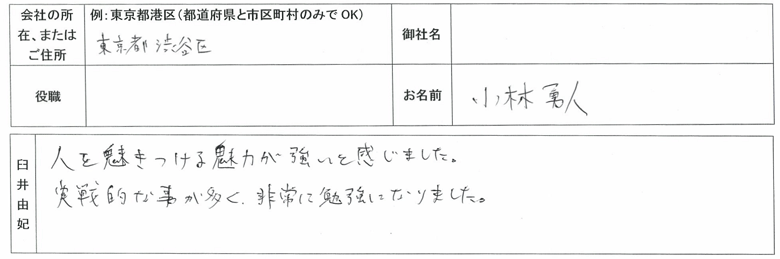 会社の所在、またはご住所
例：東京都港区（都道府県と市区町村のみでOK）
東京都渋谷区
御社名
役職
お名前
小林勇人
臼井由妃
人を魅きつける魅力が強いと感じました。
実戦的な事が多く、非常に勉強になりました。